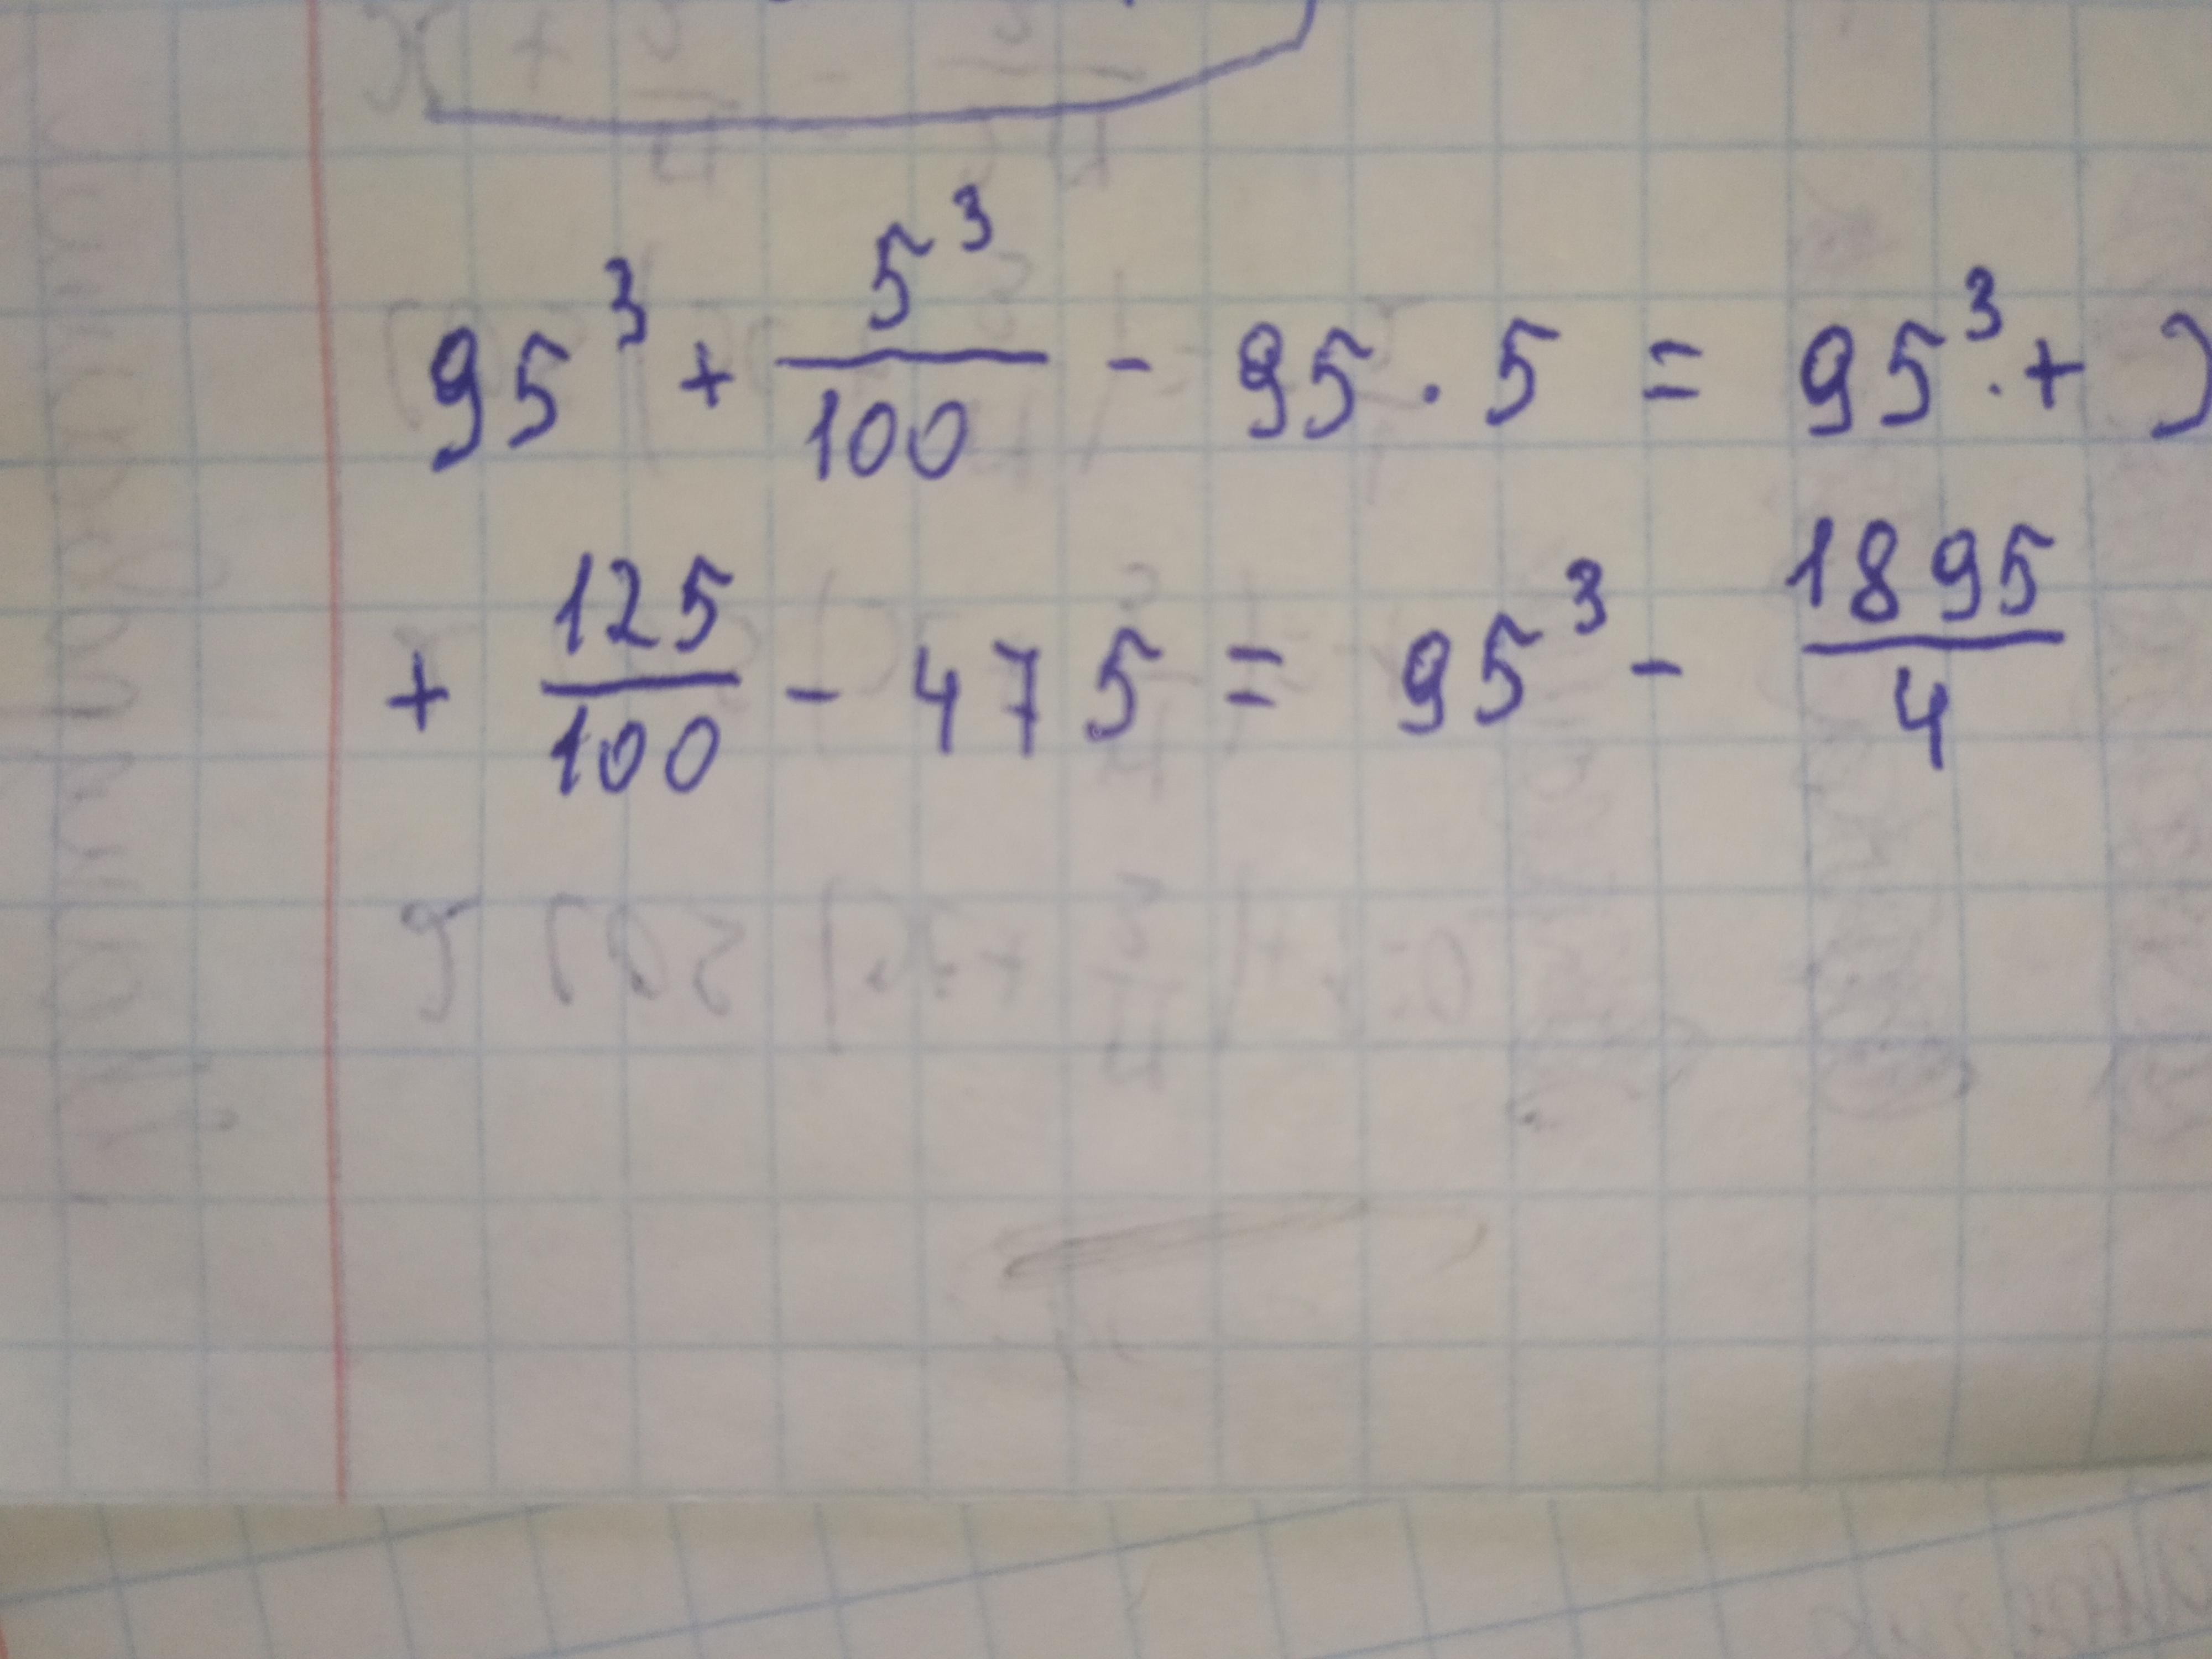 95³ + 5³/100 - 95 · 5 = 95³ +
+ 125/100 - 475 = 95³ - 1895/4